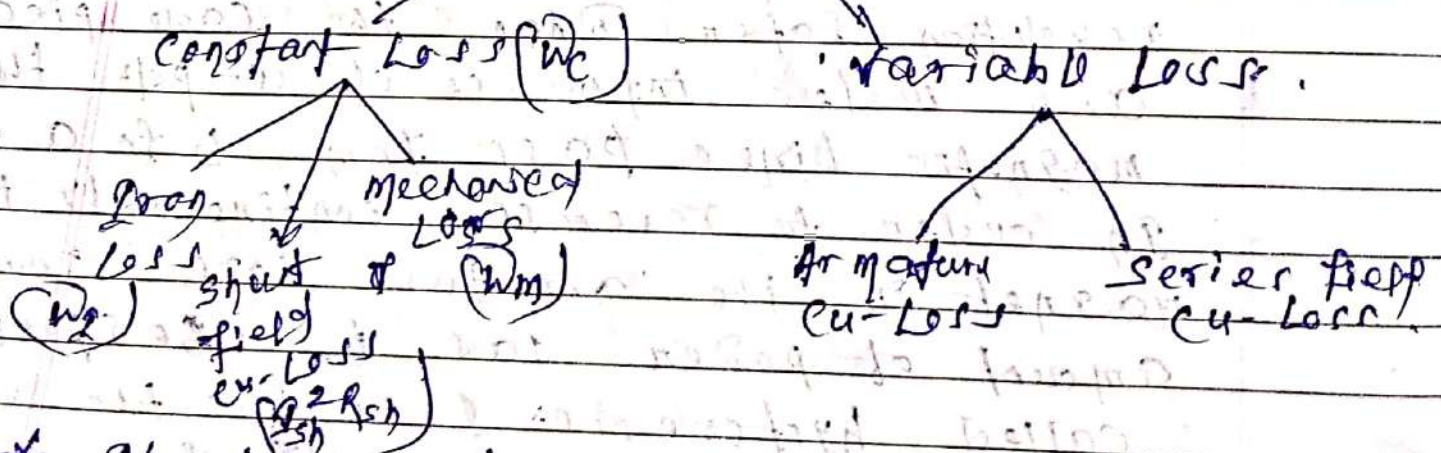 Constant Loss (Wc)
Variable Loss.
Iron
Loss
(WI)
Shunt
field
cu-Loss
(Ish²Rsh)
Mechanical
Loss
(Wm)
Armature
Cu-Loss
Series field
Cu-Loss.